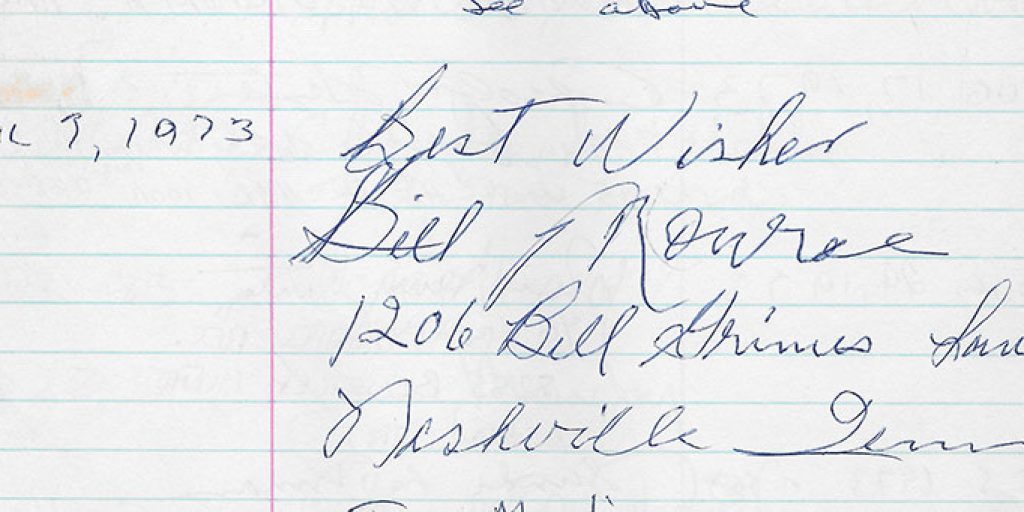 see above
7, 1973
Best Wishes
Bill Monroe
1206 Bill Grimes
Nashville Tenn